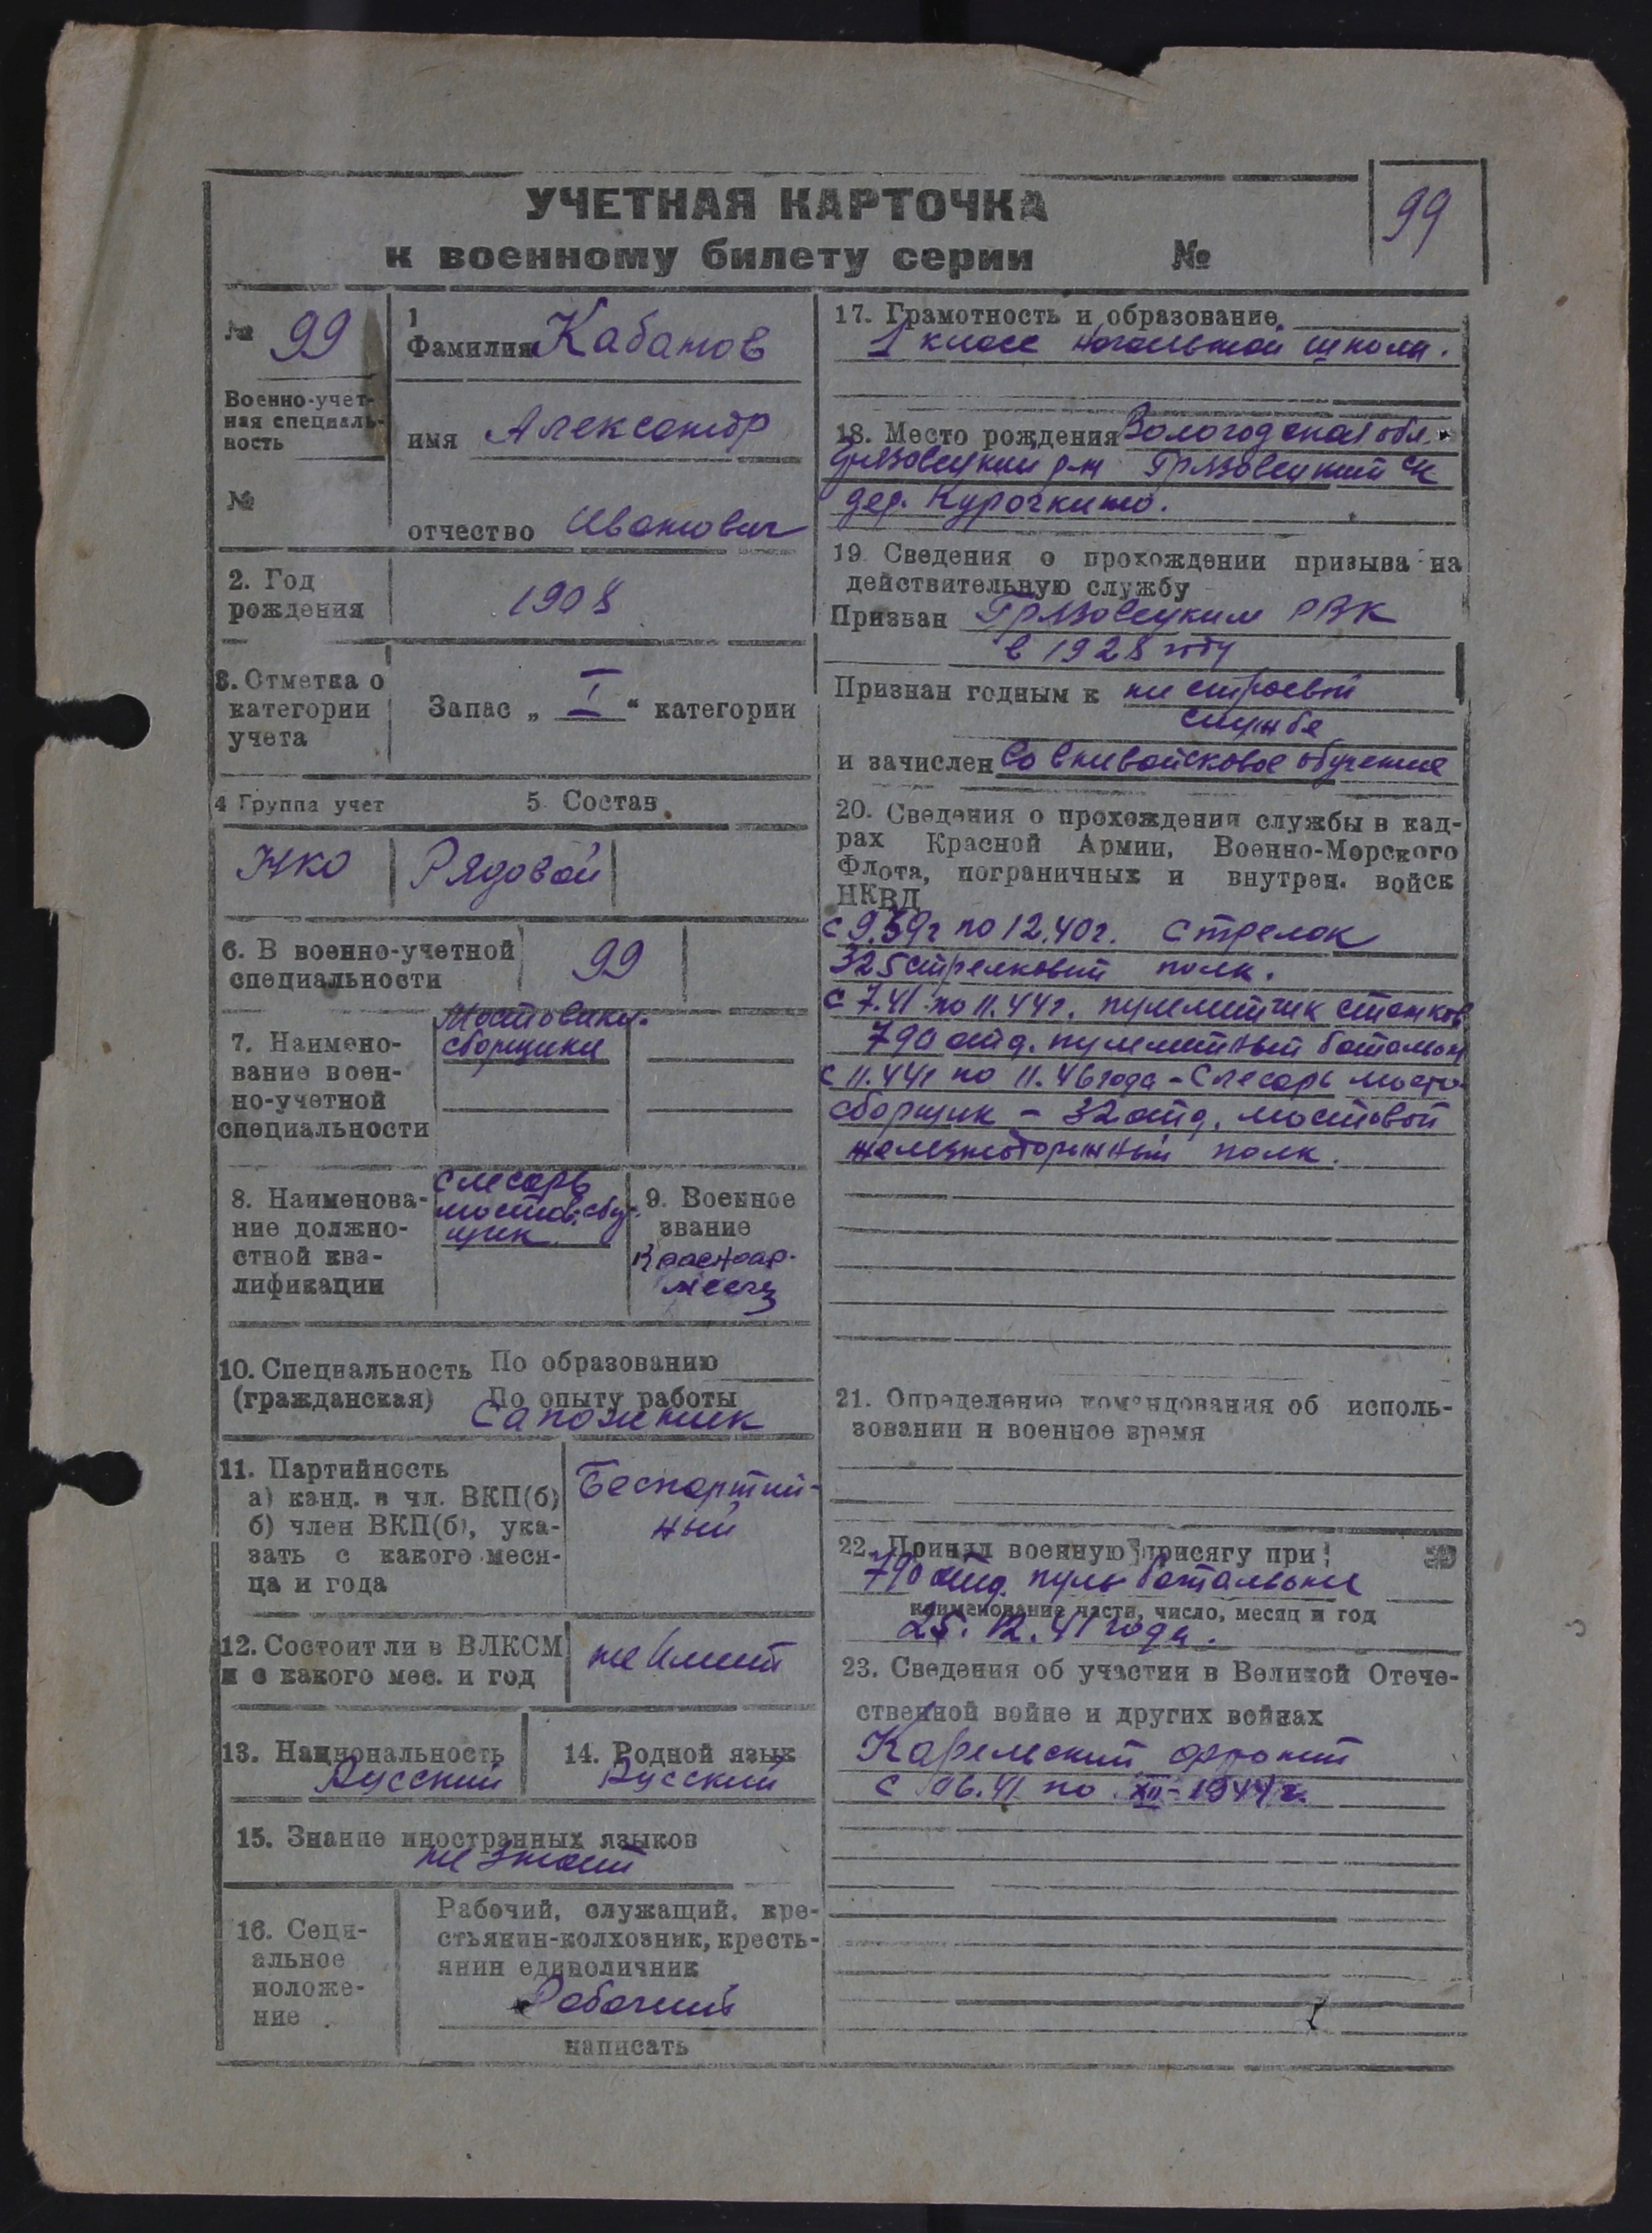 УЧЕТНАЯ КАРТОЧКА
к военному билету серии №
99
№ 99
Военно-учет-
ная специаль-
ность
№
1
Фамилия Кабанов
имя Александр
отчество Иванович
2. Год
рождения
1908
3. Отметка о
категории
учета
Запас „ I “ категории
4 Группа учет
5 Состав
НКО
Рядовой
6. В военно-учетной
специальности
99
7. Наимено-
вание воен-
но-учетной
специальности
Мостовики-
сборщики
8. Наименова-
ние должно-
стной ква-
лификации
слесарь
мостов. сбор-
щик
9. Военное
звание
Красноар-
меец
10. Специальность По образованию
(гражданская) По опыту работы
Сапожник
11. Партийность
а) канд. в чл. ВКП(б)
б) член ВКП(б), ука-
зать с какого меся-
ца и года
Беспартий-
ный
12. Состоит ли в ВЛКСМ
и с какого мес. и год
не имеет
13. Национальность
Русский
14. Родной язык
Русский
15. Знание иностранных языков
не знает
16. Соци-
альное
положе-
ние
Рабочий, служащий, кре-
стьянин-колхозник, кресть-
янин единоличник
Рабочий
написать
17. Грамотность и образование
1 класс начальной школы.
18. Место рождения Вологодская обл.
Грязовецкий р-н Грязовецкий с/с
дер. Курочкино.
19 Сведения о прохождении призыва на
действительную службу
Призван Грязовецким РВК
в 1928 году
Признан годным к не строевой
службе
и зачислен во вневойсковое обучение
20. Сведения о прохождении службы в кад-
рах Красной Армии, Военно-Морского
Флота, пограничных и внутрен. войск
НКВД
с 9.39г по 12.40г. стрелок
325 стрелковый полк.
с 7.41 по 11.44г. пулеметчик станков
790 отд. пулеметный батальон
с 11.44г по 11.46 года - Слесарь мосто-
сборщик - 32 отд. мостовой
железнодорожный полк.
21. Определение командования об исполь-
зовании и военное время
22. Принял военную присягу при
790 отд. пуль батальоне
наименование части, число, месяц и год
25. 12. 41 года.
23. Сведения об участии в Великой Отече-
ственной войне и других войнах
Карельский фронт
с 06.41 по XII-1944г.